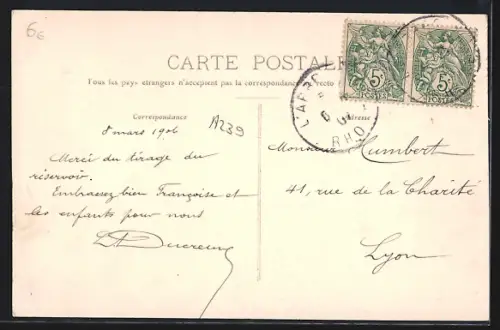 6€
CARTE POSTALE
Tous les pays étrangers n'acceptent pas la correspondance au recto
Correspondance
Adresse
5c
POSTES
5c
POSTES
L'ARBR
6
RHO
A239
8 mars 1906
Merci du tirage du
réservoir.
Embrassez bien Françoise et
les enfants pour nous
Monsieur Humbert
41, rue de la Charité
Lyon